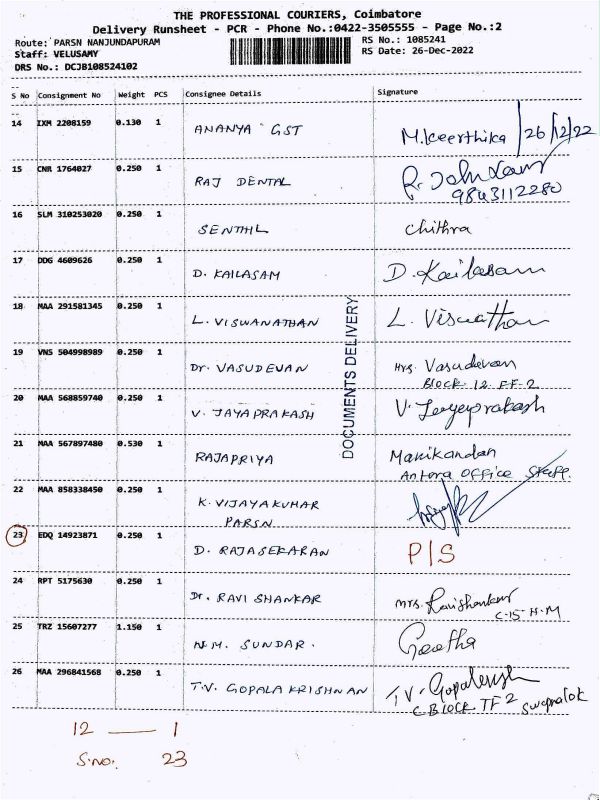 THE PROFESSIONAL COURIERS, Coimbatore
Delivery Runsheet - PCR - Phone No.:0422-3505555 - Page No.:2
Route: PARSN NANJUNDAPURAM
RS No.: 1085241
Staff: VELUSAMY
RS Date: 26-Dec-2022
DRS No.: DCJB108524102
S No Consignment No Weight PCS Consignee Details Signature
14 IXM 2208159 0.130 1 ANANYA GST M.Keerthika 26/12/22
15 CNR 1764027 0.250 1 RAJ DENTAL
9843112280
16 SLM 310253020 0.250 1 SENTHIL Chithra
17 DDG 4609626 0.250 1 D. KAILASAM D. Kailasam
18 MAA 291581345 0.250 1 L. VISWANATHAN L. Viswathan
19 VNS 504998989 0.250 1 Dr. VASUDEVAN Mrs. Vasudevan
BLOCK 12 FF-2
20 MAA 568859740 0.250 1 V. JAYAPRAKASH V. Jayaprakash
21 MAA 567897480 0.530 1 RAJAPRIYA Manikandan
Antora OFFICE Staff.
22 MAA 858338450 0.250 1 K. VIJAYAKUMAR
PARSN
23 EDQ 14923871 0.250 1 D. RAJASEKARAN P/S
24 RPT 5175630 0.250 1 Dr. RAVI SHANKAR Mrs. Ravishankar
C-15 H.M
25 TRZ 15607277 1.150 1 N.M. SUNDAR. Geetha
26 MAA 296841568 0.250 1 T.V. GOPALA KRISHNAN T.V. Gopalkrish
C BLOCK TF 2 Swapnalok
DOCUMENTS DELIVERY
12 — 1
S.no. 23